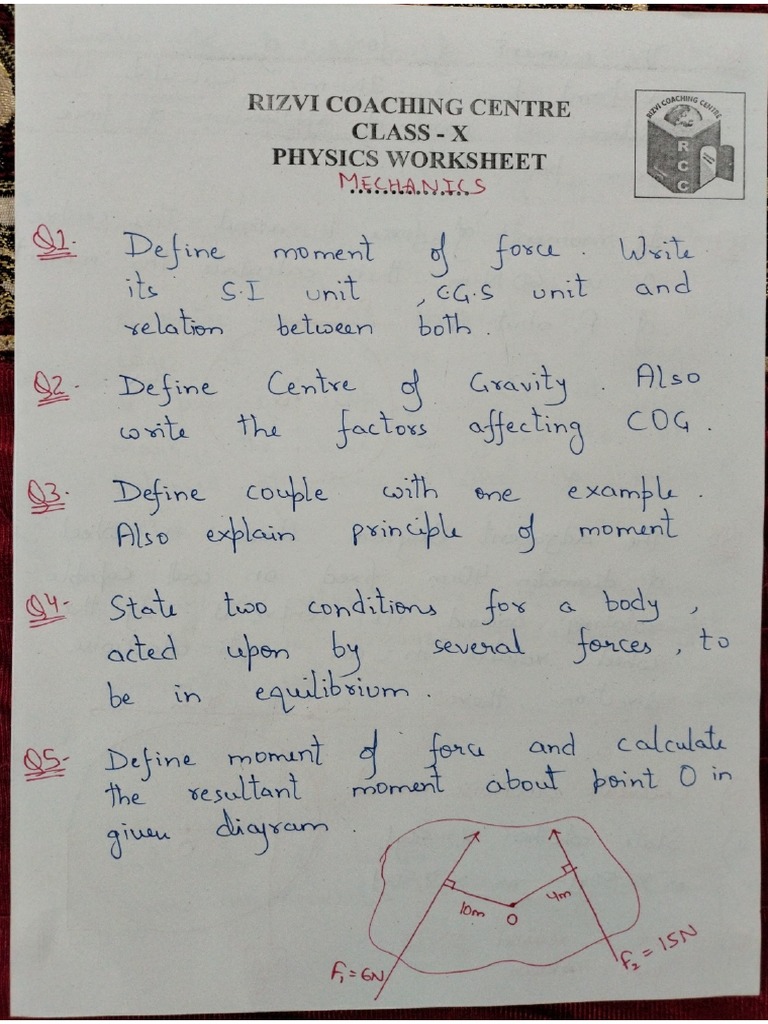 RIZVI COACHING CENTRE
CLASS - X
PHYSICS WORKSHEET
MECHANICS
RIZVI COACHING CENTRE
R
C
C
Q1. Define moment of force. Write
its S.I unit, C.G.S unit and
relation between both.
Q2. Define Centre of Gravity. Also
write the factors affecting COG.
Q3. Define couple with one example.
Also explain principle of moment
Q4- State two conditions for a body,
acted upon by several forces, to
be in equilibrium.
Q5- Define moment of force and calculate
the resultant moment about point O in
given diagram.
10m
O
4m
F₁ = 6N
F₂ = 15N